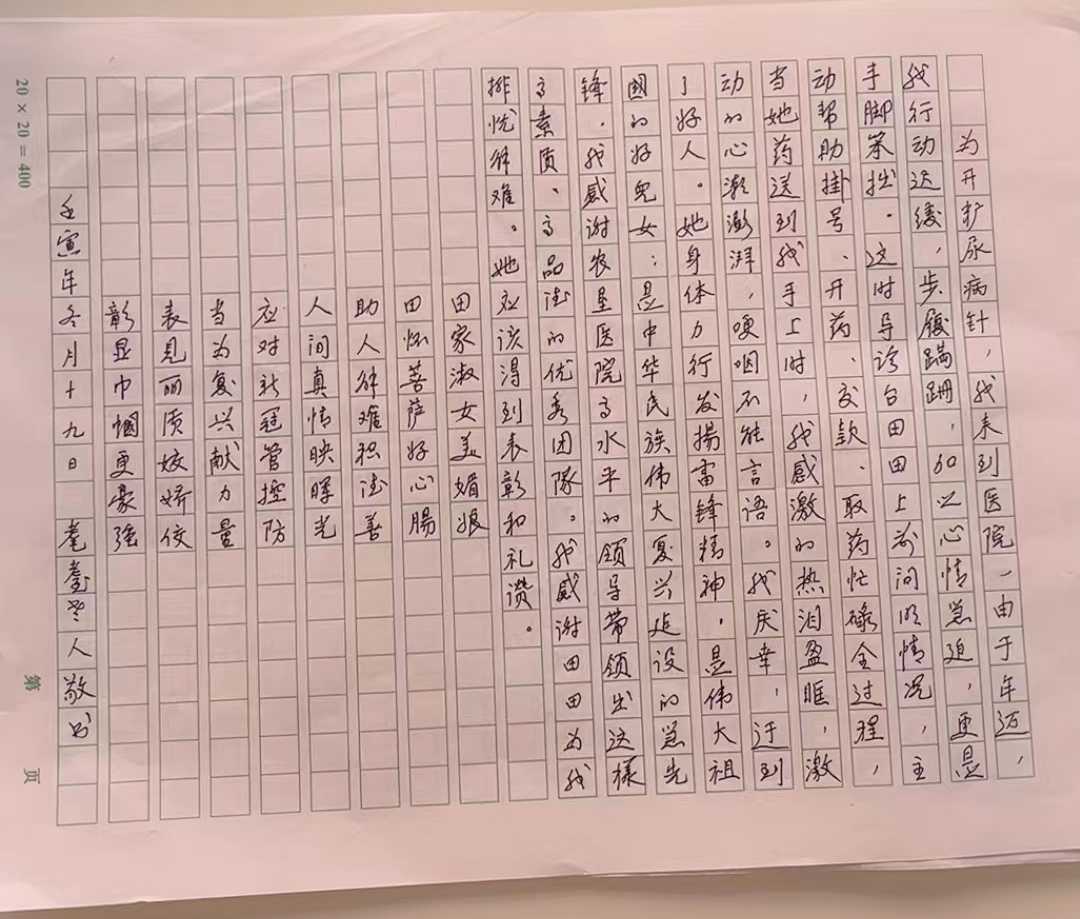 为开扩尿病针，我来到医院，由于年迈，
我行动迟缓，步履蹒跚，加之心情急迫，更是
手脚笨拙。这时导诊台田田上前问明情况，主
动帮助挂号、开药、交款、取药忙碌全过程，
当她药送到我手上时，我感激的热泪盈眶，激
动的心潮澎湃，哽咽不能言语。我庆幸，迂到
了好人。她身体力行发揚雷锋精神，是伟大祖
國的好兒女：是中华民族伟大复兴建设的急先
锋，我感谢农垦医院高水平的领导带领出这樣
高素质、高品德的优秀团隊。我感谢田田为我
排忧解难。她应该得到表彰和礼讚。
田家淑女美媚娘
田怀菩萨好心腸
助人解难积德善
人间真情映晖光
应对新冠管控防
当为复兴献力量
表見丽质姣娇佼
彰显巾帼更豪强
壬寅年冬月十九日 耄耋老人敬书
20 × 20 = 400 第 页